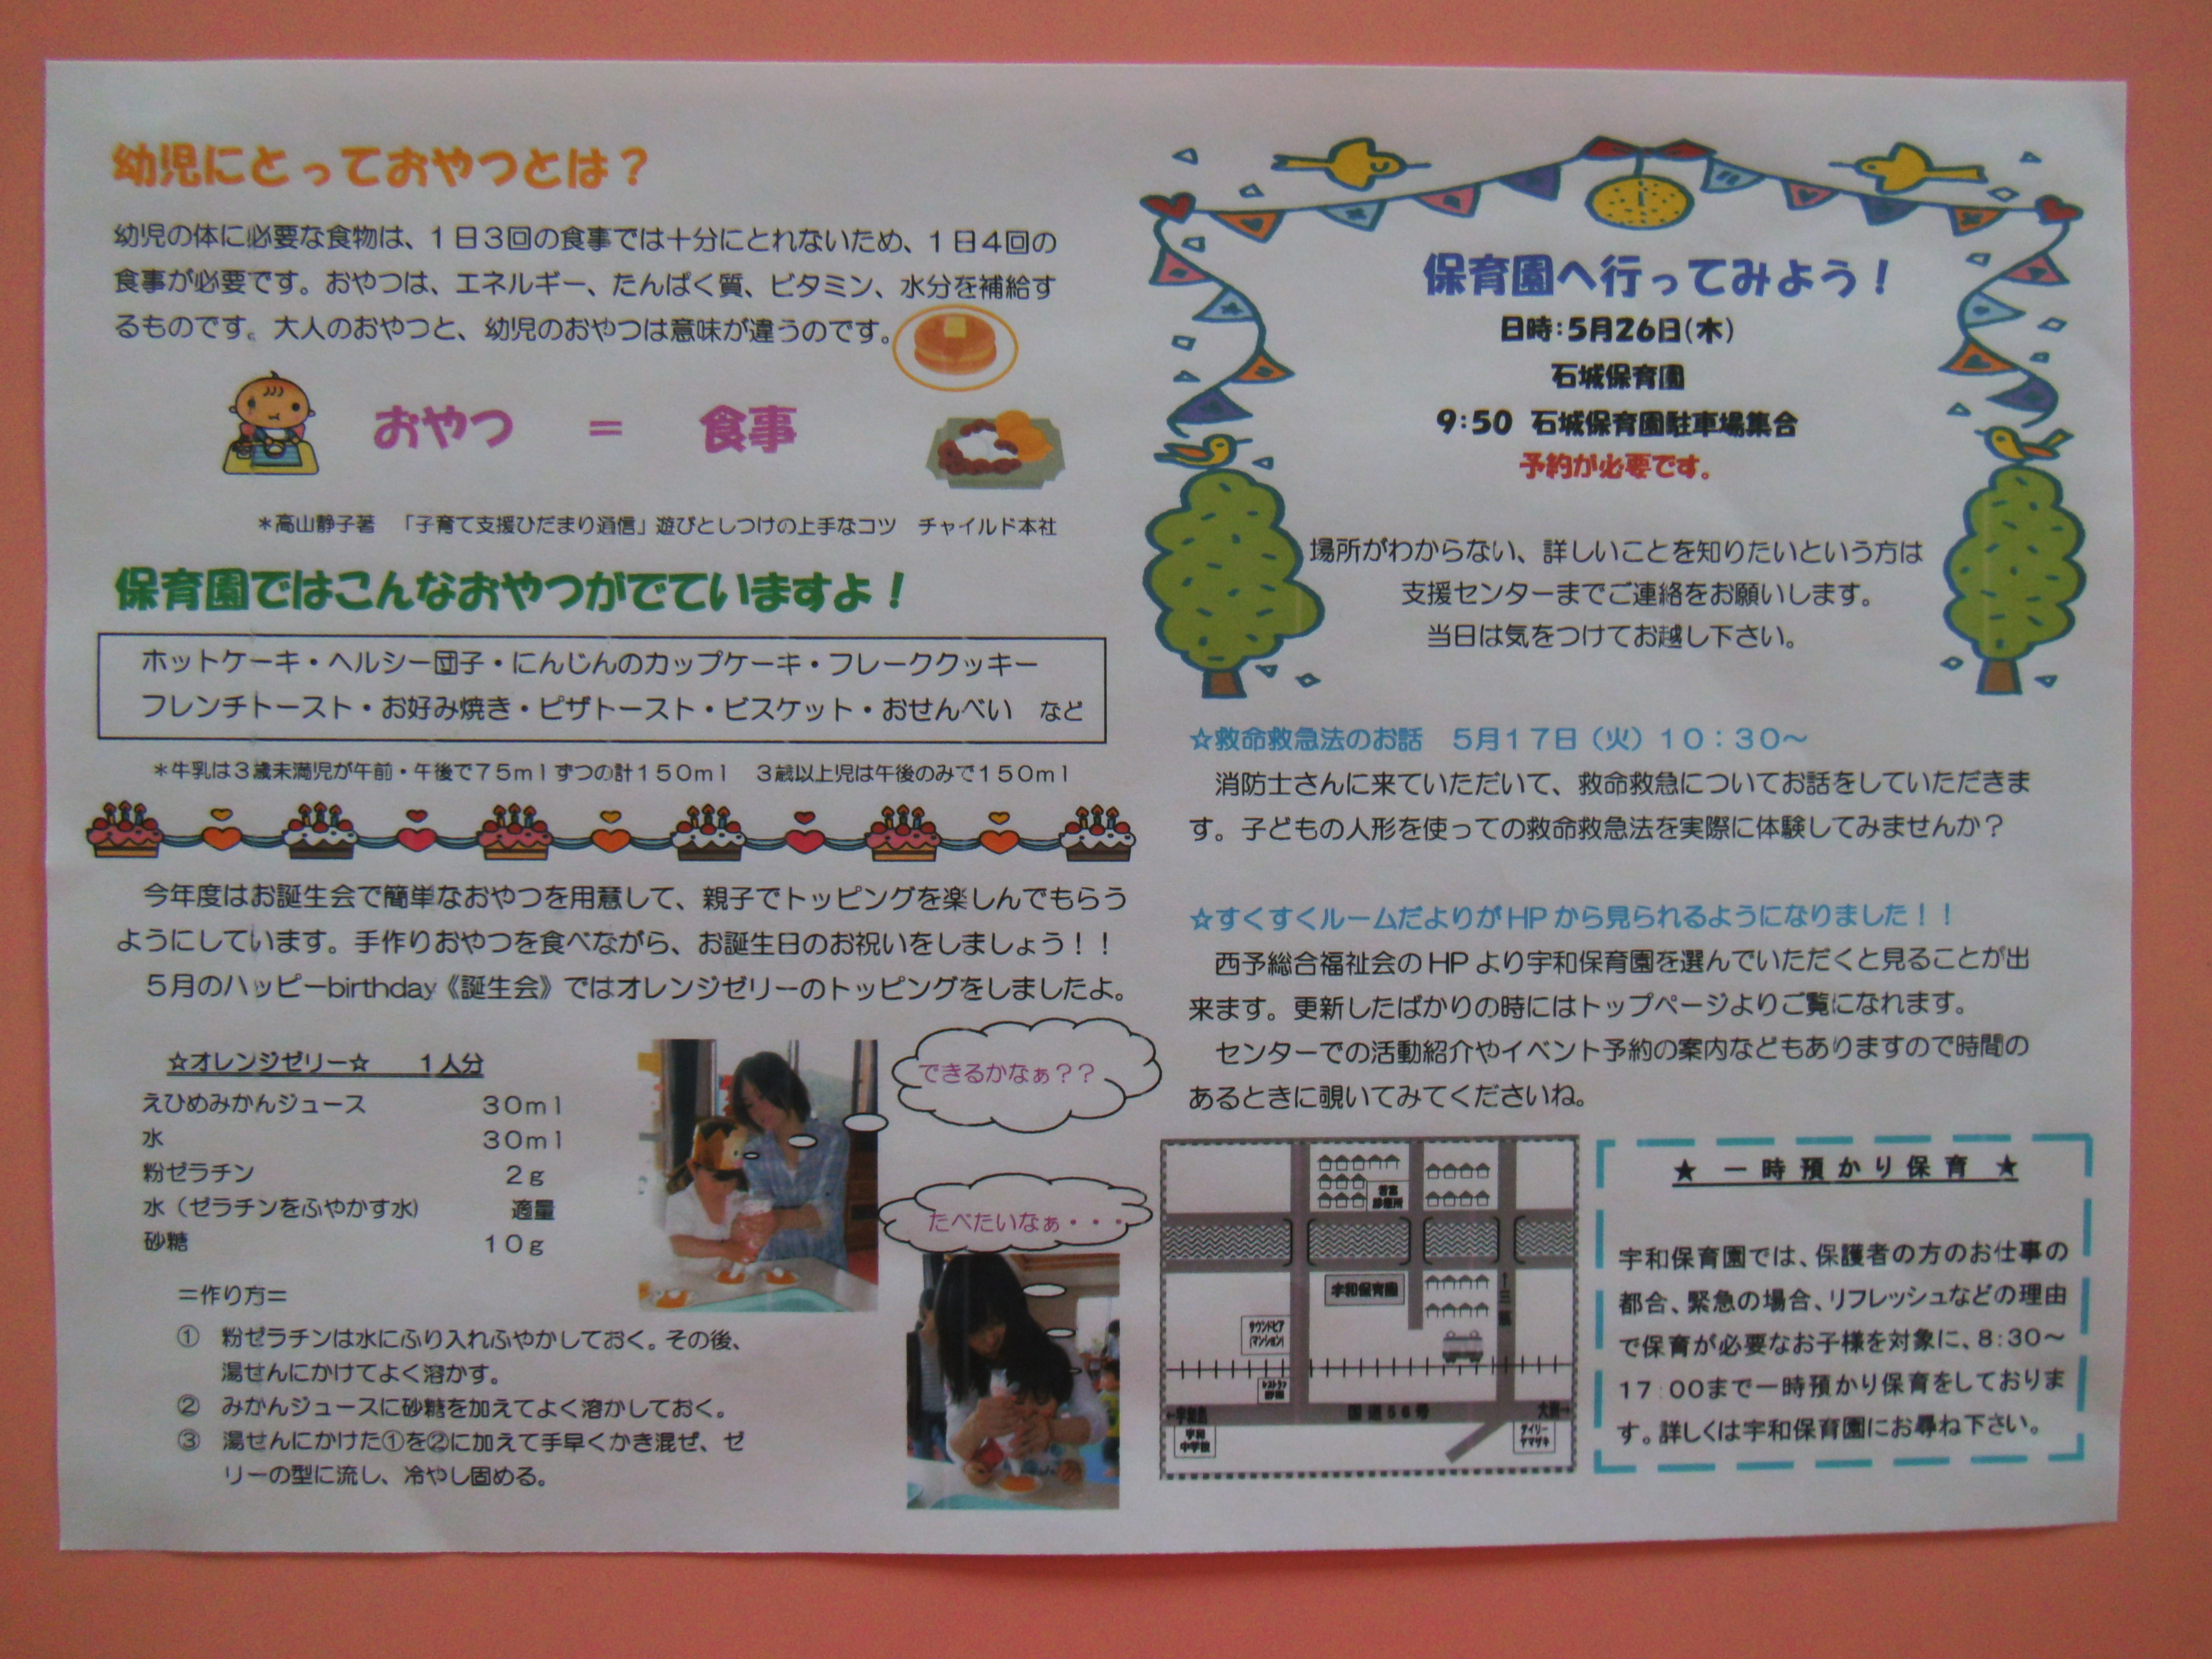 幼児にとっておやつとは？
幼児の体に必要な食物は、１日３回の食事では十分にとれないため、１日４回の
食事が必要です。おやつは、エネルギー、たんぱく質、ビタミン、水分を補給す
るものです。大人のおやつと、幼児のおやつは意味が違うのです。
おやつ ＝ 食事
＊高山静子著 「子育て支援ひだまり通信」遊びとしつけの上手なコツ チャイルド本社
保育園ではこんなおやつがでていますよ！
ホットケーキ・ヘルシー団子・にんじんのカップケーキ・フレーククッキー
フレンチトースト・お好み焼き・ピザトースト・ビスケット・おせんべい など
＊牛乳は３歳未満児が午前・午後で７５ｍｌずつの計１５０ｍｌ ３歳以上児は午後のみで１５０ｍｌ
今年度はお誕生会で簡単なおやつを用意して、親子でトッピングを楽しんでもらう
ようにしています。手作りおやつを食べながら、お誕生日のお祝いをしましょう！！
５月のハッピーbirthday《誕生会》ではオレンジゼリーのトッピングをしましたよ。
☆オレンジゼリー☆ １人分
えひめみかんジュース ３０ｍｌ
水 ３０ｍｌ
粉ゼラチン ２ｇ
水（ゼラチンをふやかす水） 適量
砂糖 １０ｇ
＝作り方＝
① 粉ゼラチンは水にふり入れふやかしておく。その後、
湯せんにかけてよく溶かす。
② みかんジュースに砂糖を加えてよく溶かしておく。
③ 湯せんにかけた①を②に加えて手早くかき混ぜ、ゼ
リーの型に流し、冷やし固める。
できるかなぁ？？
たべたいなぁ・・・
保育園へ行ってみよう！
日時：５月２６日（木）
石城保育園
９：５０ 石城保育園駐車場集合
予約が必要です。
場所がわからない、詳しいことを知りたいという方は
支援センターまでご連絡をお願いします。
当日は気をつけてお越し下さい。
☆救命救急法のお話 ５月１７日（火）１０：３０～
消防士さんに来ていただいて、救命救急についてお話をしていただきま
す。子どもの人形を使っての救命救急法を実際に体験してみませんか？
☆すくすくルームだよりがHPから見られるようになりました！！
西予総合福祉会のHPより宇和保育園を選んでいただくと見ることが出
来ます。更新したばかりの時にはトップページよりご覧になれます。
センターでの活動紹介やイベント予約の案内などもありますので時間の
あるときに覗いてみてくださいね。
宇和保育園
↑三瓶
サウンドピア
（マンション）
レストラン
国道５６号
←宇和島
大洲→
宇和
中学校
デイリー
ヤマザキ
★ 一時預かり保育 ★
宇和保育園では、保護者の方のお仕事の
都合、緊急の場合、リフレッシュなどの理由
で保育が必要なお子様を対象に、8：30～
17：00まで一時預かり保育をしておりま
す。詳しくは宇和保育園にお尋ね下さい。